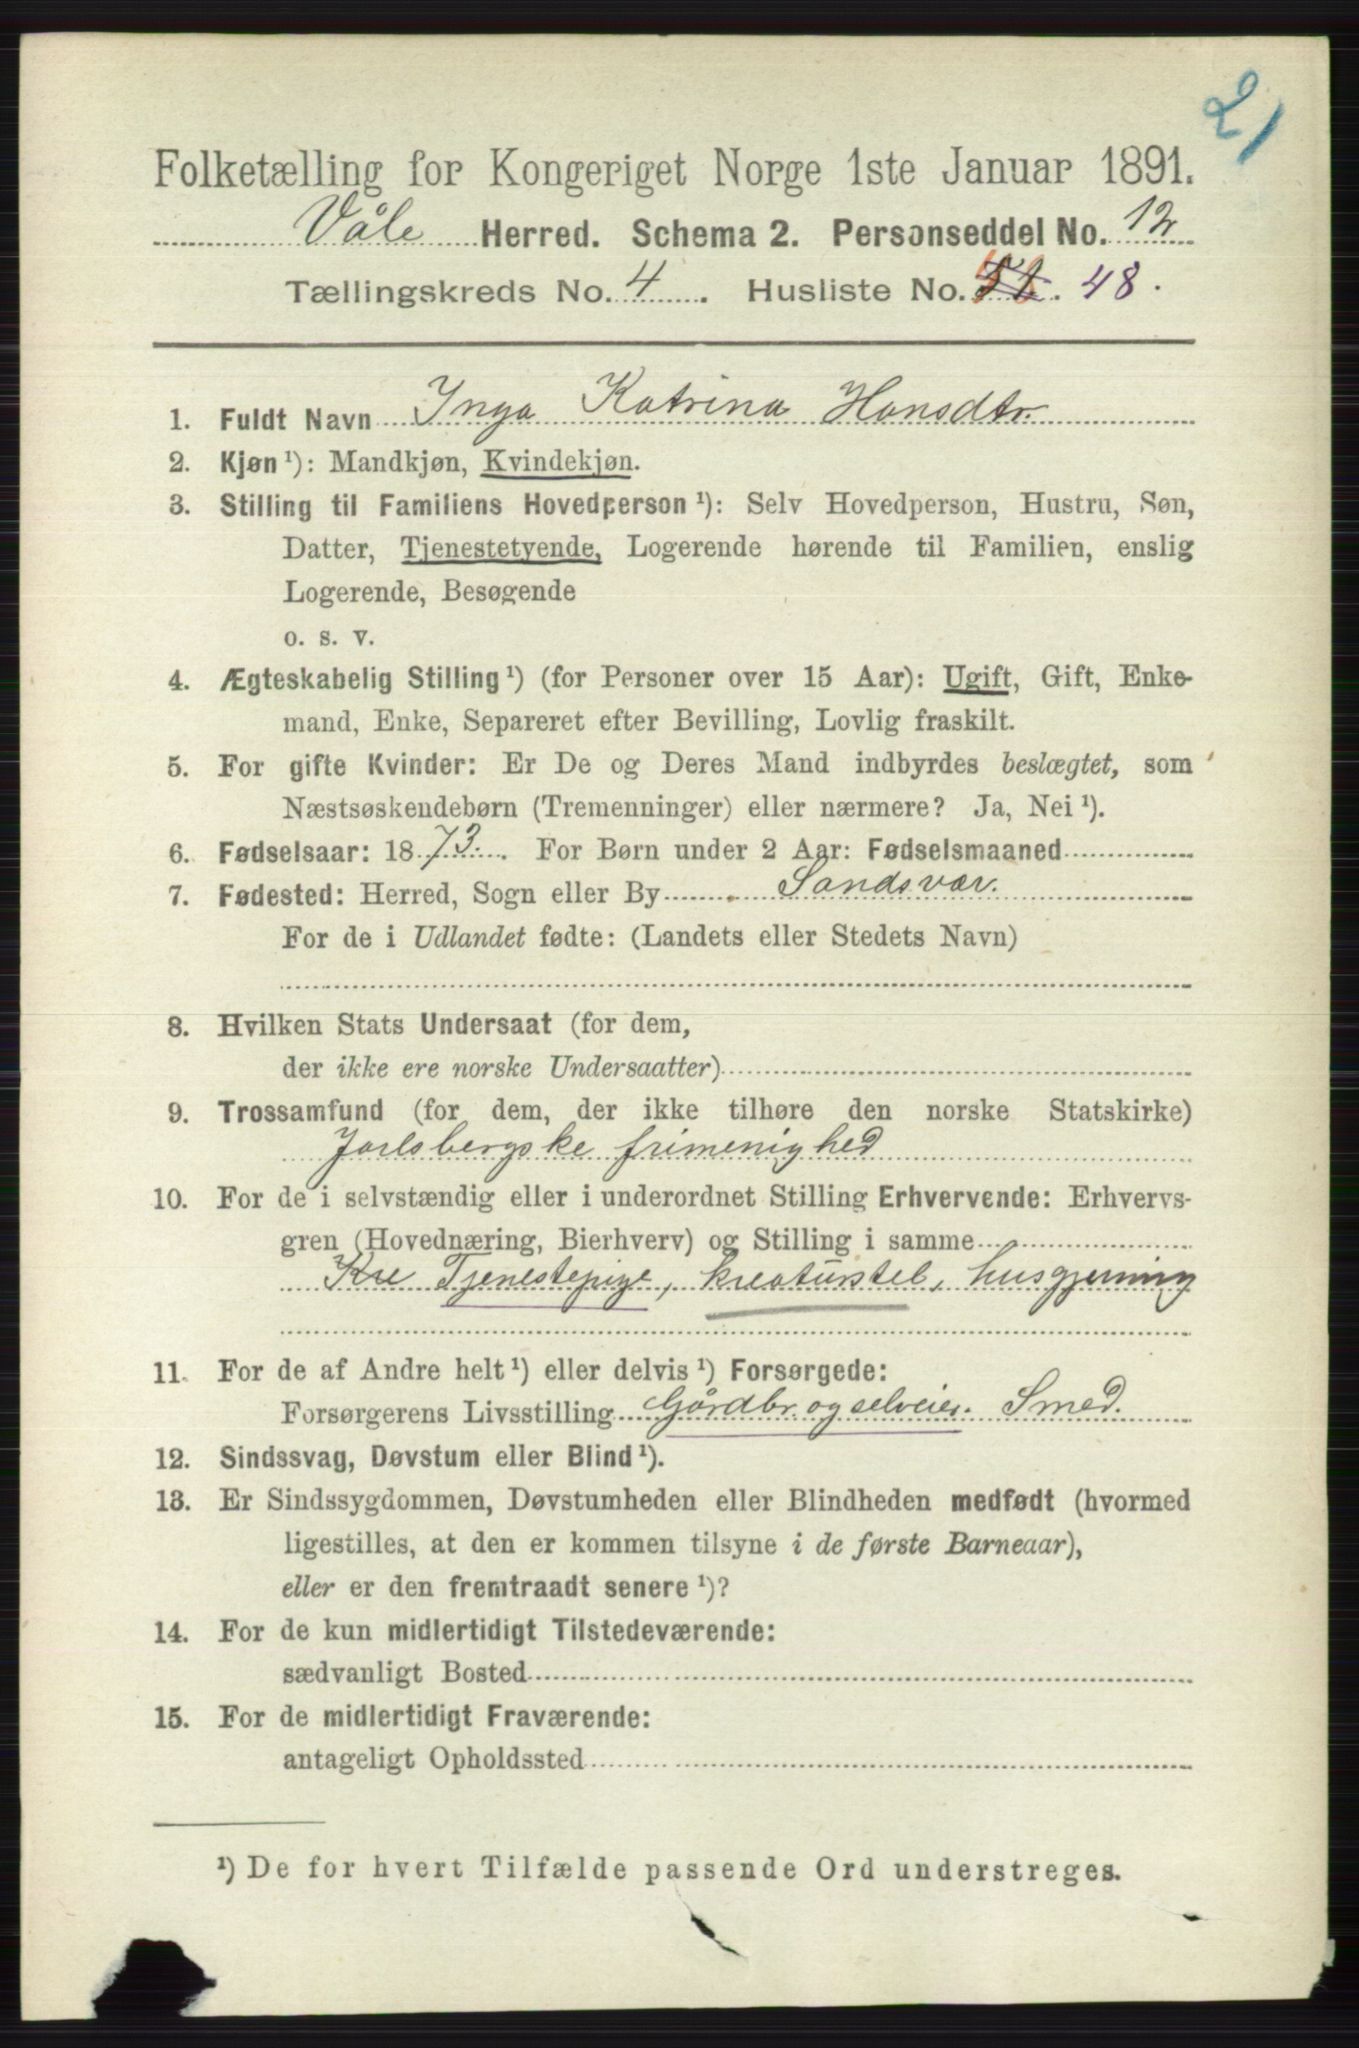 21
Folketælling for Kongeriget Norge 1ste Januar 1891.
Våle Herred. Schema 2. Personseddel No. 12
Tællingskreds No. 4. Husliste No. 48.
1. Fuldt Navn Inga Katrina Hansdtr.
2. Kjøn ¹): Mandkjøn, Kvindekjøn.
3. Stilling til Familiens Hovedperson ¹): Selv Hovedperson, Hustru, Søn,
Datter, Tjenestetyende, Logerende hørende til Familien, enslig
Logerende, Besøgende
o. s. v.
4. Ægteskabelig Stilling ¹) (for Personer over 15 Aar): Ugift, Gift, Enke-
mand, Enke, Separeret efter Bevilling, Lovlig fraskilt.
5. For gifte Kvinder: Er De og Deres Mand indbyrdes beslægtet, som
Næstsøskendebørn (Tremenninger) eller nærmere? Ja, Nei ¹).
6. Fødselsaar: 1873. For Børn under 2 Aar: Fødselsmaaned
7. Fødested: Herred, Sogn eller By Sandsvær.
For de i Udlandet fødte: (Landets eller Stedets Navn)
8. Hvilken Stats Undersaat (for dem,
der ikke ere norske Undersaatter)
9. Trossamfund (for dem, der ikke tilhøre den norske Statskirke)
Jarlsbergske frimenighed
10. For de i selvstændig eller i underordnet Stilling Erhvervende: Erhvervs-
gren (Hovednæring, Bierhverv) og Stilling i samme
Tjenestepige, kreaturstel, husgjerning
11. For de af Andre helt ¹) eller delvis ¹) Forsørgede:
Forsørgerens Livsstilling Gårdbr. og selveier. Smed.
12. Sindssvag, Døvstum eller Blind ¹).
13. Er Sindssygdommen, Døvstumheden eller Blindheden medfødt (hvormed
ligestilles, at den er kommen tilsyne i de første Barneaar),
eller er den fremtraadt senere ¹)?
14. For de kun midlertidigt Tilstedeværende:
sædvanligt Bosted
15. For de midlertidigt Fraværende:
antageligt Opholdssted
¹) De for hvert Tilfælde passende Ord understreges.